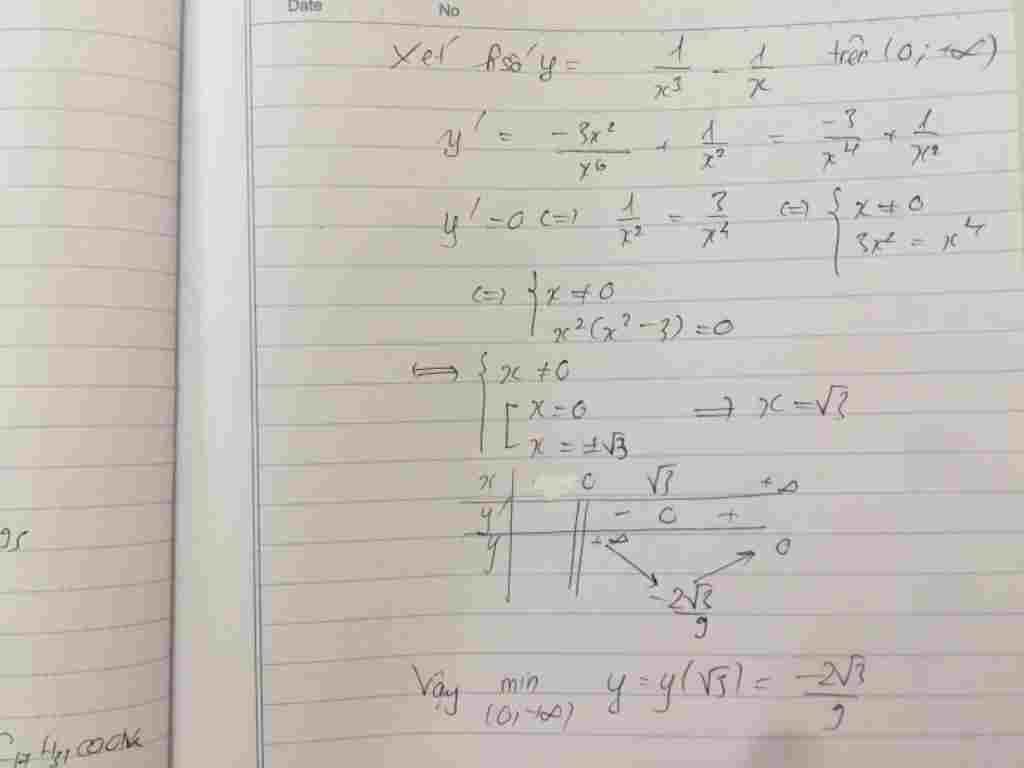 Date No
Xét h.số y = 1/x³ - 1/x trên (0; +∞)
y' = -3x²/x⁶ + 1/x² = -3/x⁴ + 1/x²
y' = 0 (=) 1/x² = 3/x⁴ (=) { x ≠ 0
3x² = x⁴
(=) { x ≠ 0
x²(x² - 3) = 0
⟺ { x ≠ 0
[ x = 0 ⟹ x = √3
x = ±√3
x 0 √3 +∞
y' - 0 +
y +∞ 0
-2√3/9
Vậy min y = y(√3) = -2√3/9
(0; +∞)